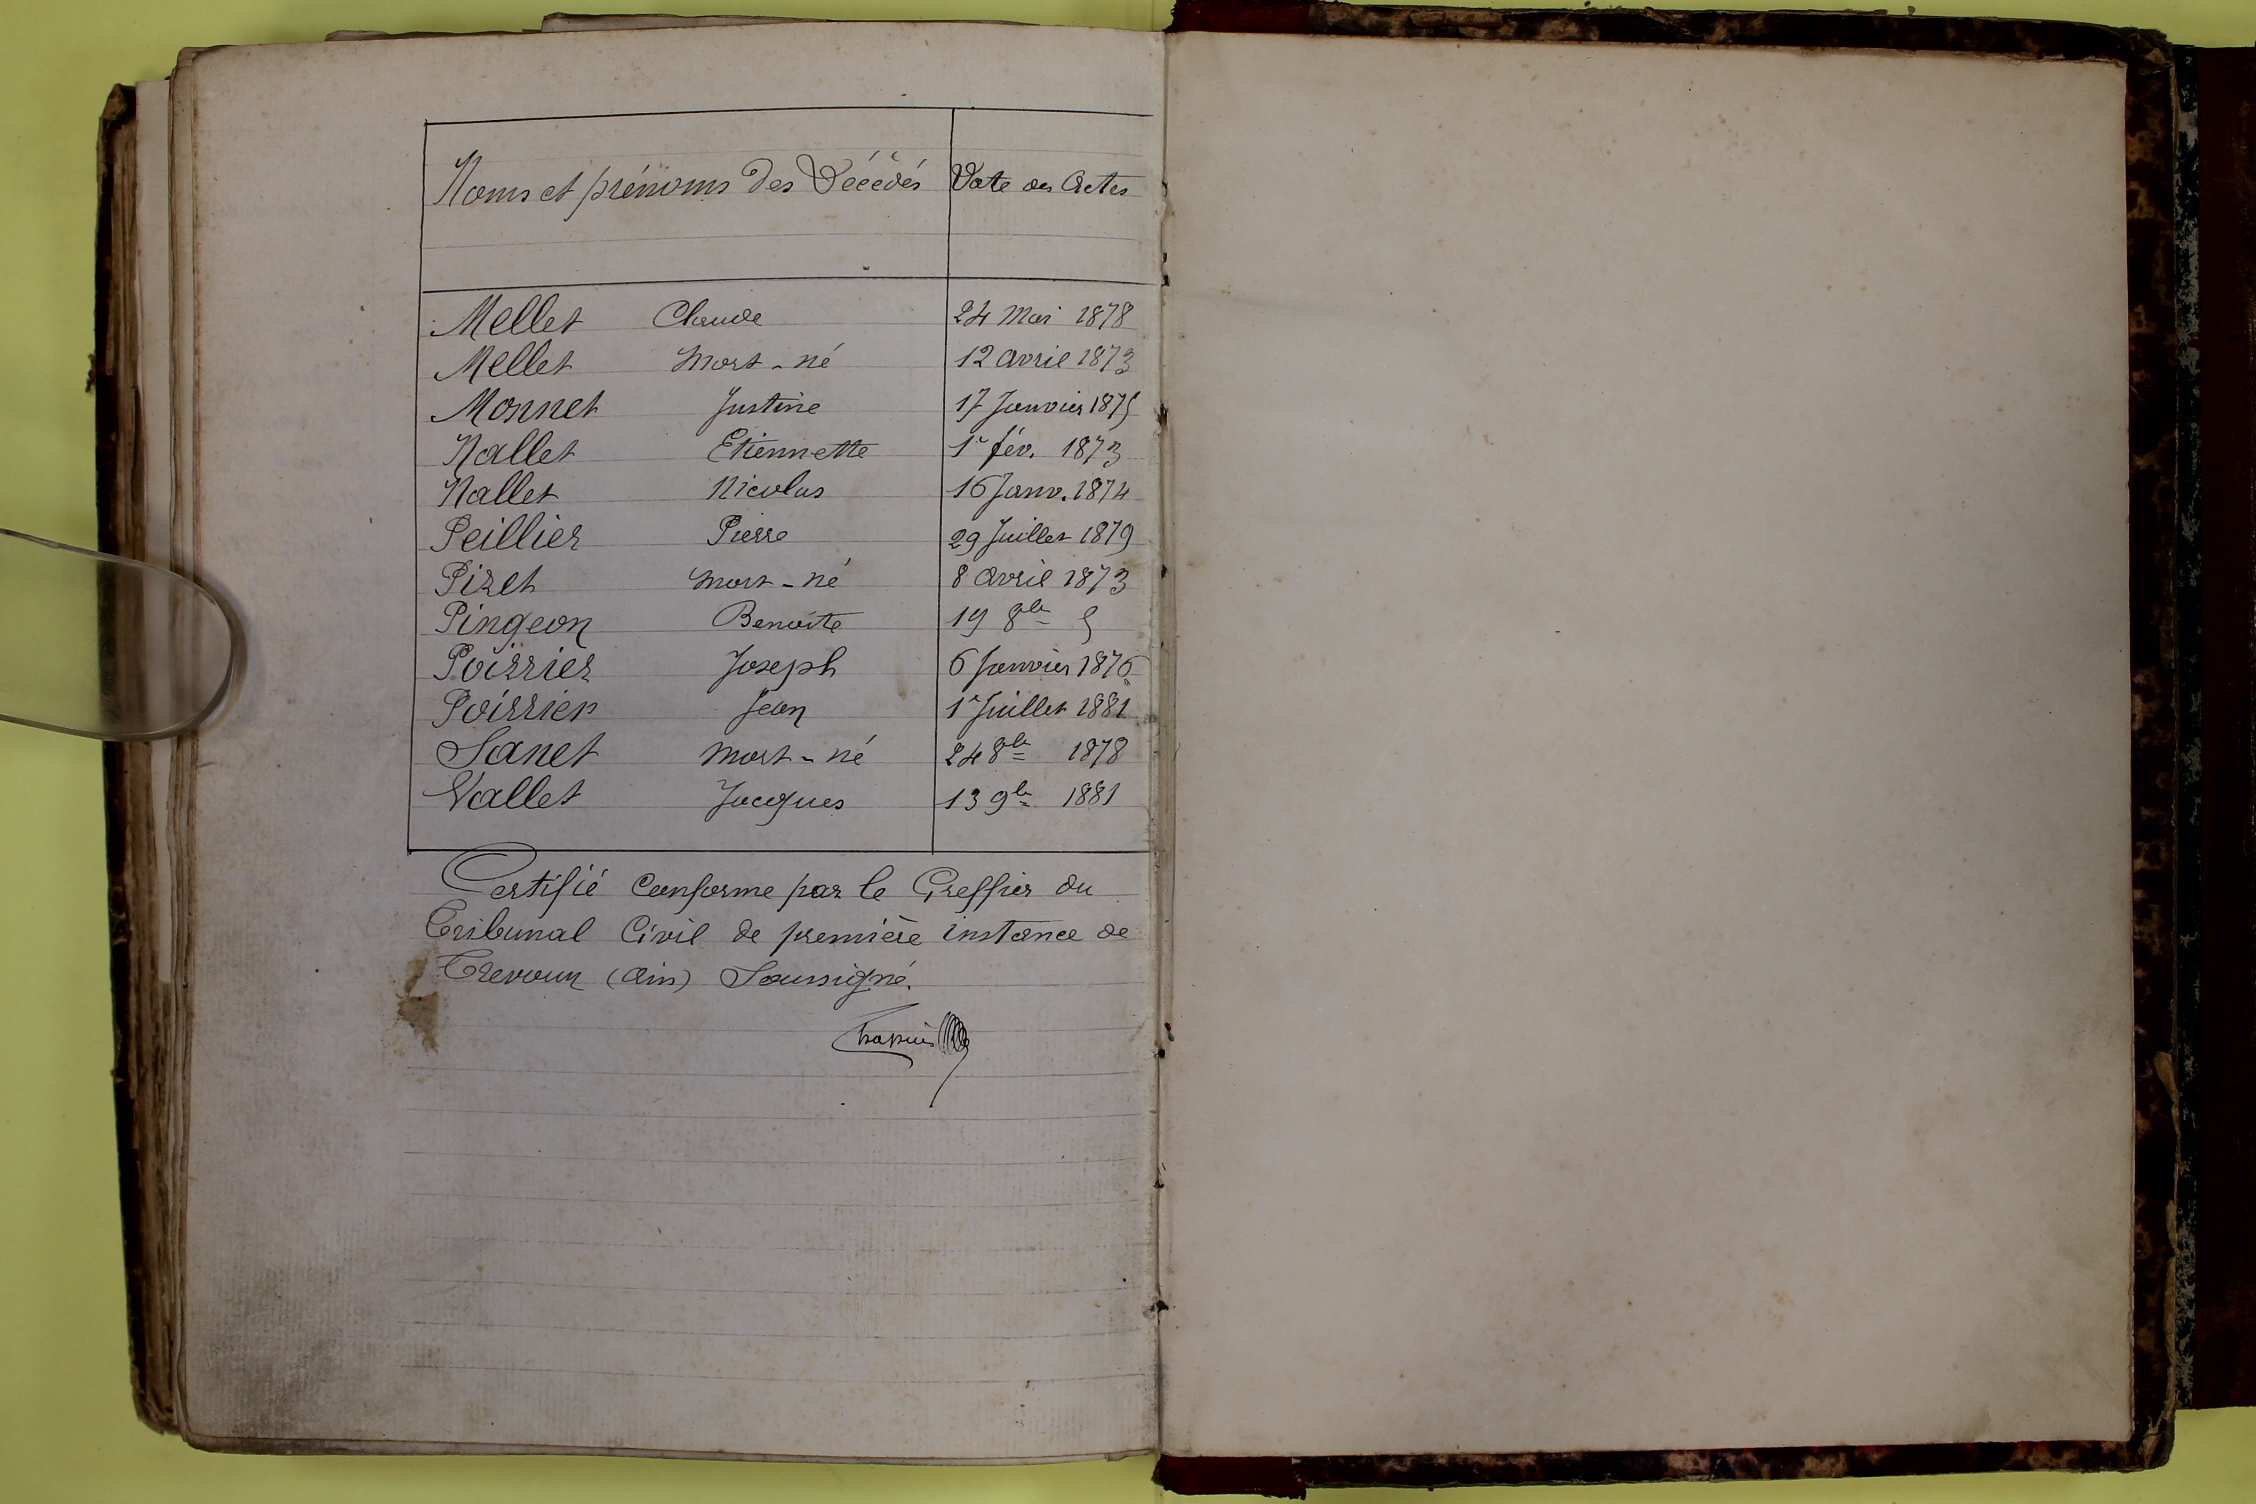 Noms et prénoms des Décédés Date des Actes
Mellet Claude 24 Mai 1878
Mellet Mort-né 12 Avril 1873
Monnet Justine 17 Janvier 1875
Nallet Etiennette 1r fév. 1873
Nallet Nicolas 16 Janv. 1874
Peillier Pierre 29 Juillet 1879
Piret Mort-né 8 Avril 1873
Pingeon Benoite 19 8bre
Poirrier Joseph 6 Janvier 1876
Poirrier Jean 1r Juillet 1881
Sanet Mort-né 24 8bre 1878
Vallet Jacques 13 9bre 1881
Certifié conforme par le Greffier du
Tribunal Civil de première instance de
Trevoux (Ain) Soussigné.
Chapuis